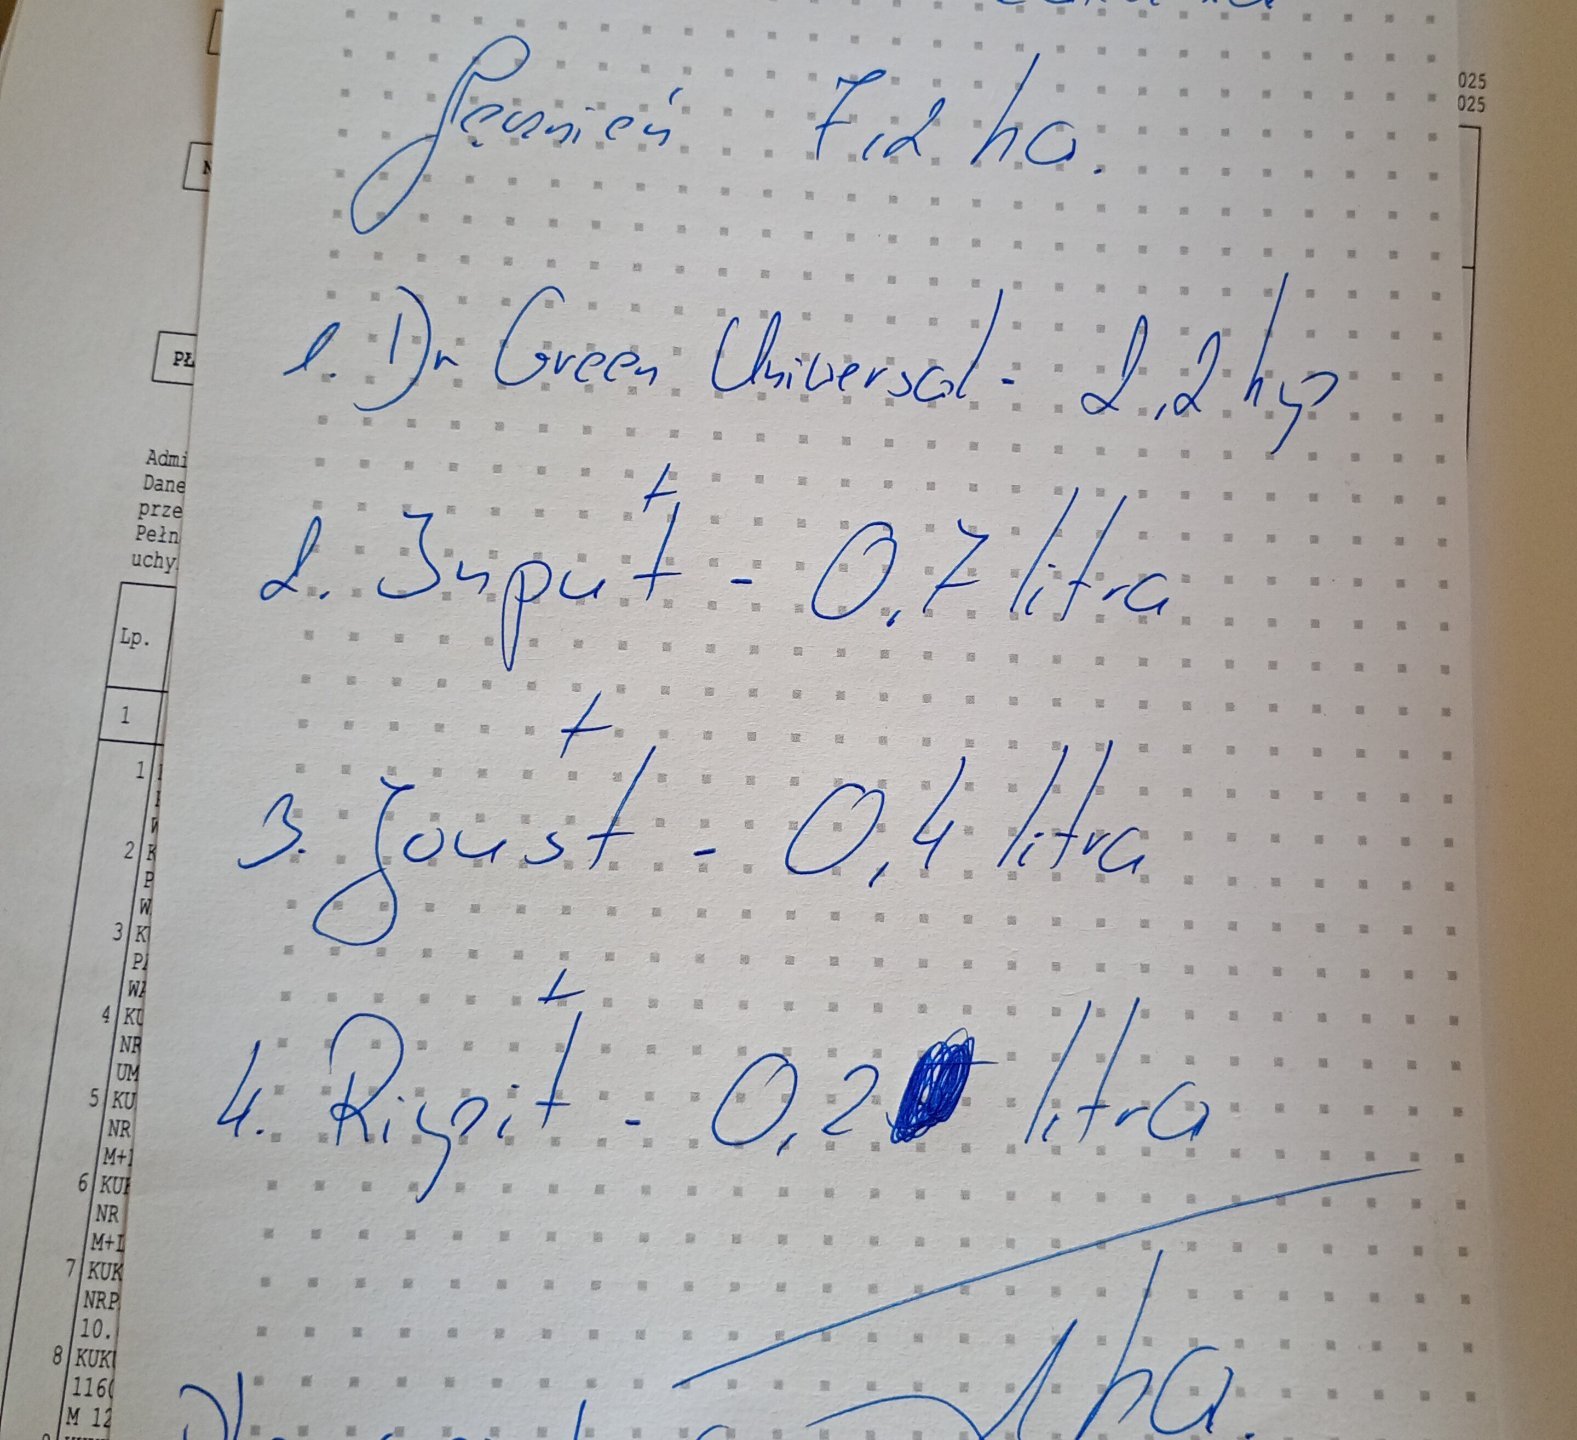 025
025
Jęczmień 7,2 ha.
1. Dr Green Universal - 2,2 kg
+
2. Input - 0,7 litra
+
3. Joust - 0,4 litra
+
4. Rigpit - 0,2 litra
1 ha.
PŁ
Admi
Dane
prze
Pełn
uchy
Lp.
1
1
2 K
P
W
3 K
P
WA
4 KU
NR
UM
5 KU
NR
M+
6 KU
NR
M+I
7 KUK
NRP
10.
8 KUK
116
M 12